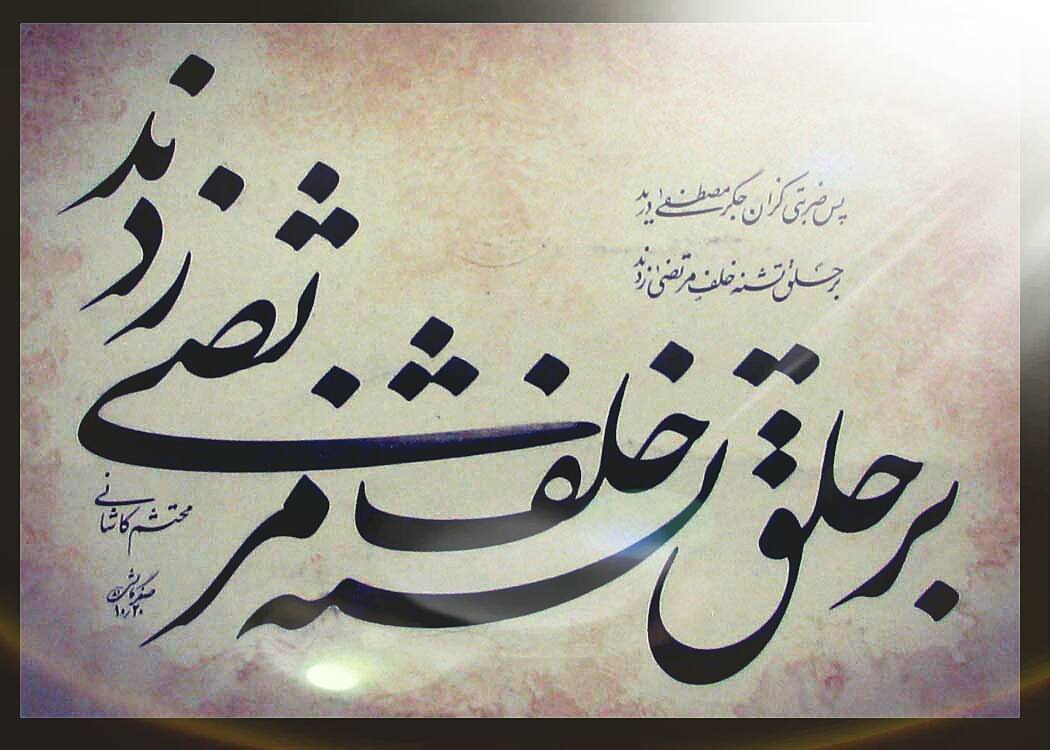 پس ضربتی کزان جگر مصطفی درید
بر حلق تشنه خلف مرتضی زدند
بر حلق تشنه خلف مرتضی زدند
محتشم کاشانی